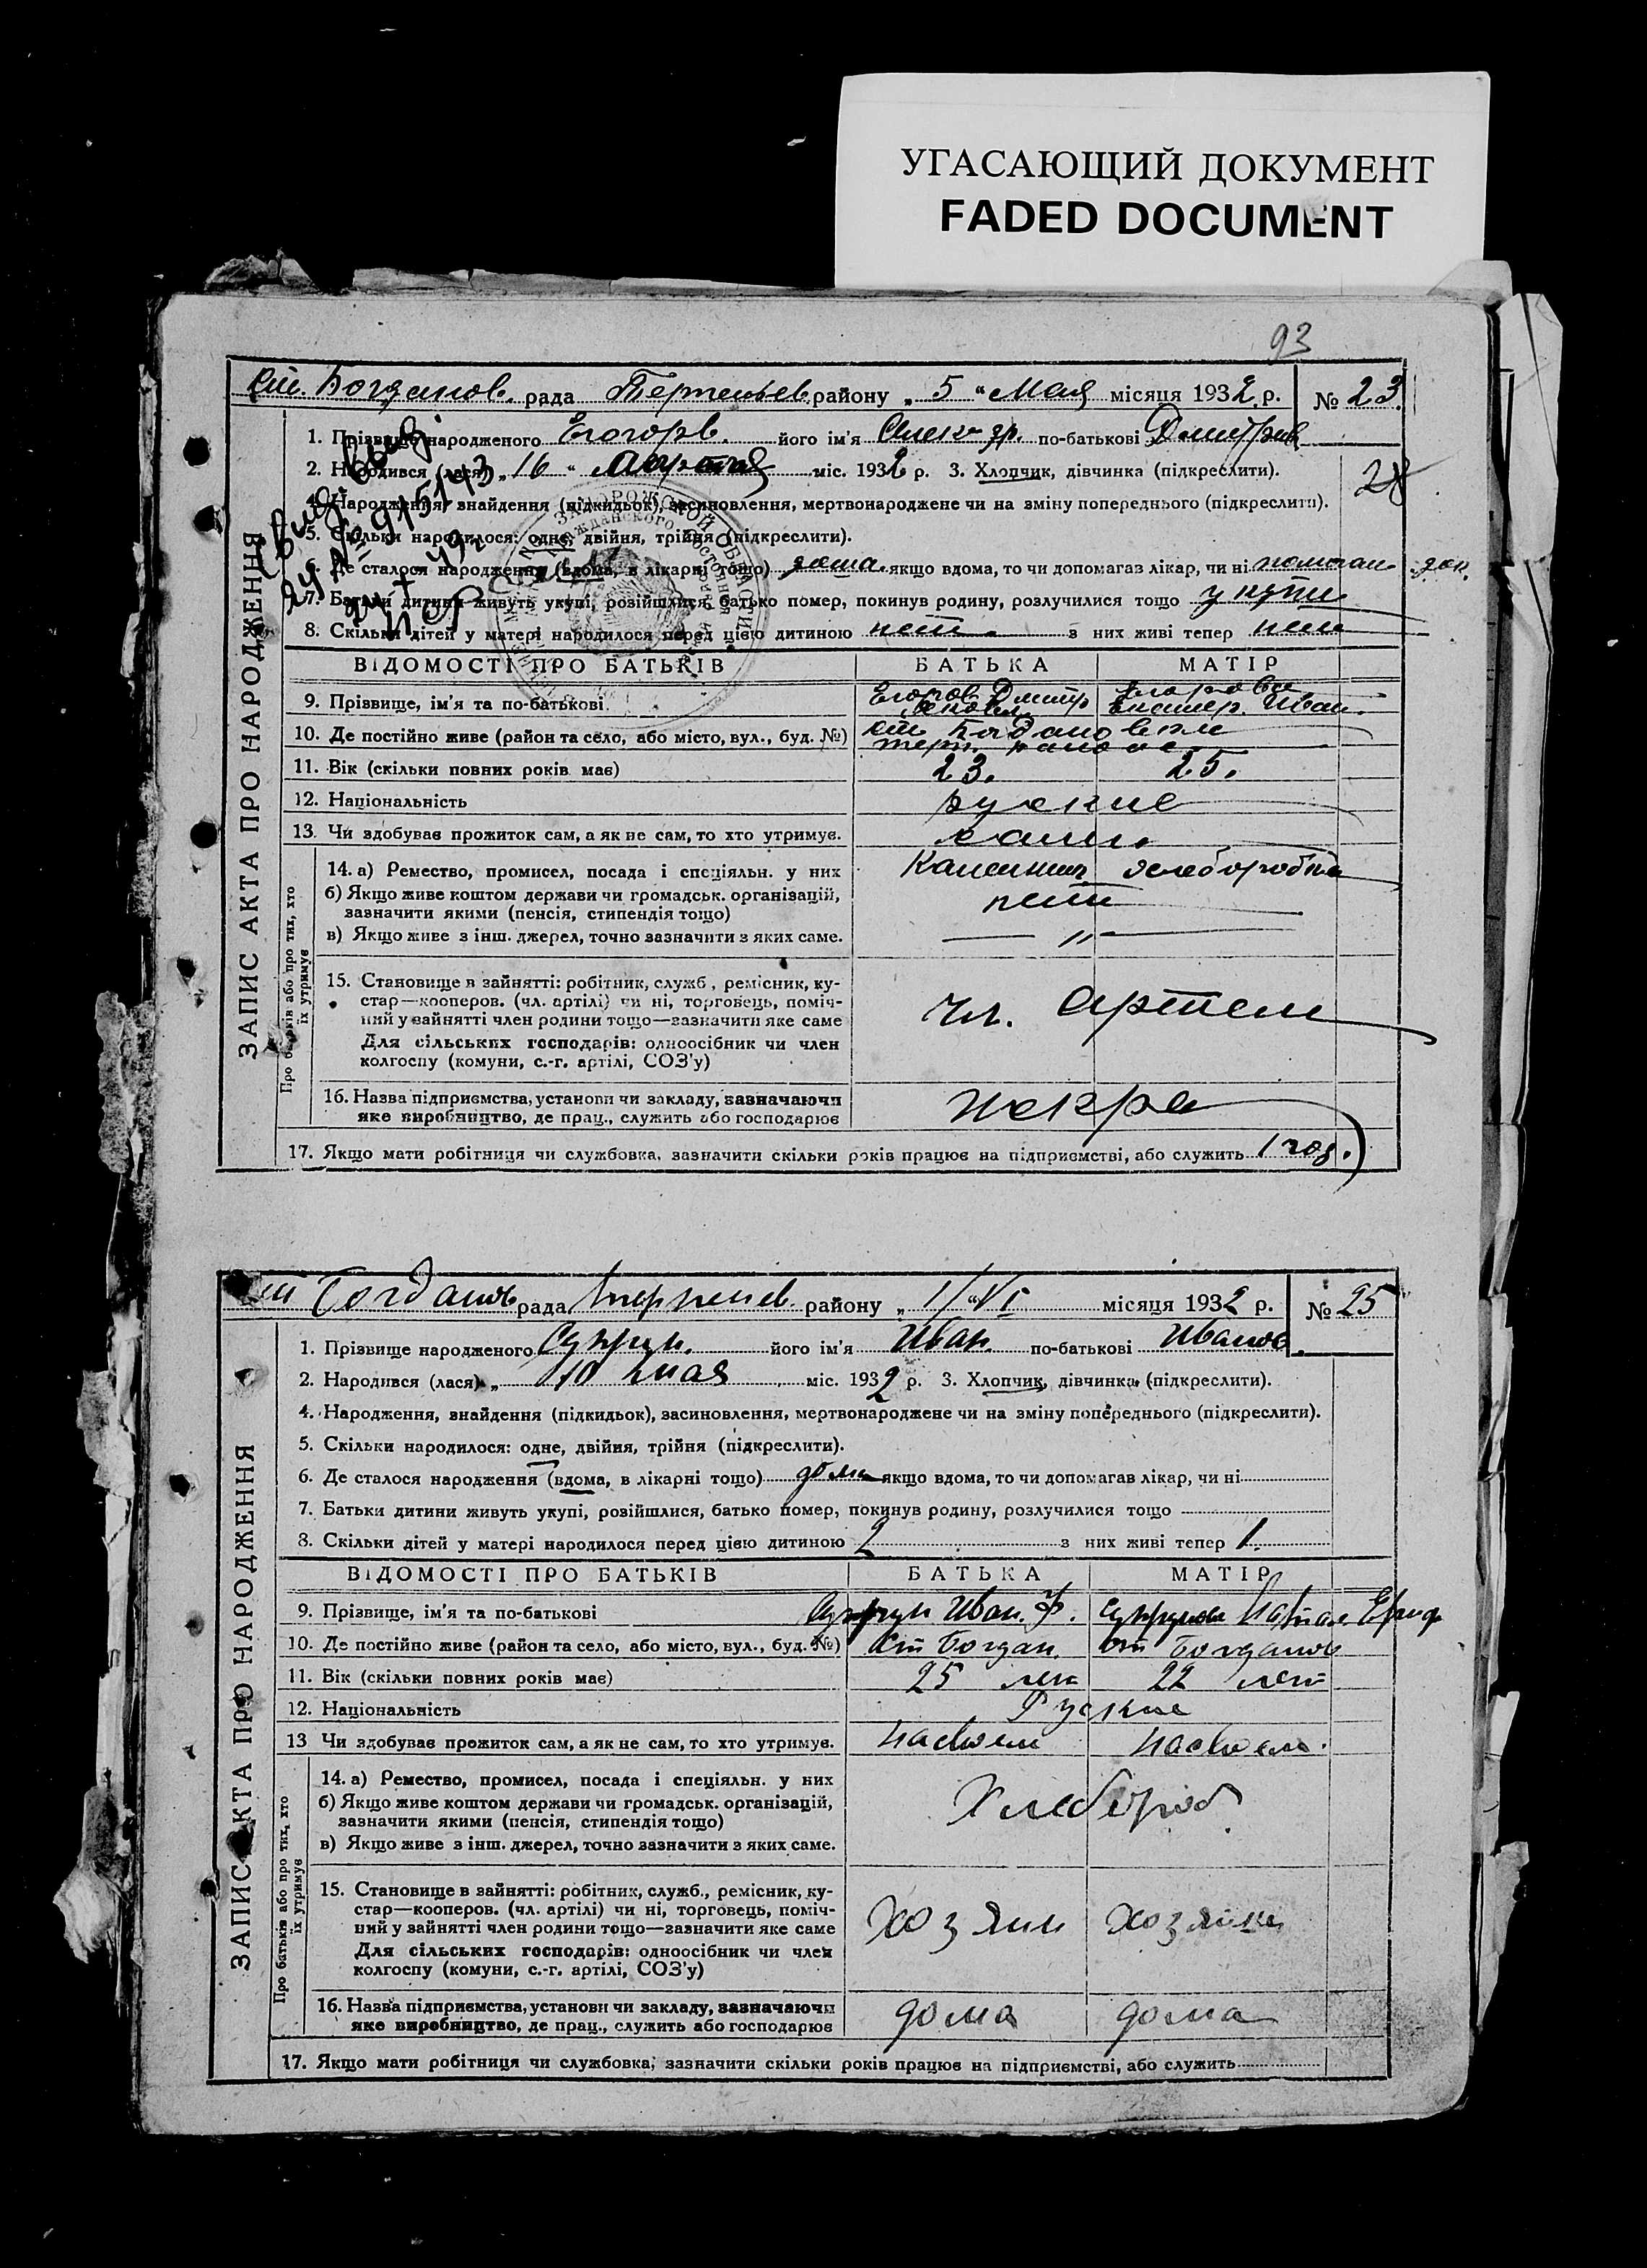 УГАСАЮЩИЙ ДОКУМЕНТ
FADED DOCUMENT
93
Богданов. рада район у „ 5 “ Мая місяця 1932 р. № 23.
1. Прізвище народженого його ім'я по-батькові
2. Народився (лася) „ 16 “ міс. 1932 р. 3. Хлопчик, дівчинка (підкреслити).
28
4. Народження, знайдення (підкидьок), засиновлення, мертвонароджене чи на зміну попереднього (підкреслити).
5. Скільки народилося: одне, двійня, трійня (підкреслити).
6. Де сталося народження (вдома, в лікарні тощо) дома. якщо вдома, то чи допомагав лікар, чи ні
7. Батьки дитини живуть укупі, розійшлися, батько помер, покинув родину, розлучилися тощо
8. Скільки дітей у матері народилося перед цією дитиною нет. з них живі тепер нет
№ 915143
ВІДОМОСТІ ПРО БАТЬКІВ БАТЬКА МАТІР
9. Прізвище, ім'я та по-батькові. Егоров Дмитр Егорова Иван.
10. Де постійно живе (район та село, або місто, вул., буд. №)
11. Вік (скільки повних років має) 23. 25.
12. Національність руские
13. Чи здобуває прожиток сам, а як не сам, то хто утримує. сами.
14. а) Ремество, промисел, посада і спеціяльн. у них
б) Якщо живе коштом держави чи громадськ. організацій, нет
зазначити якими (пенсія, стипендія тощо)
в) Якщо живе з інш. джерел, точно зазначити з яких саме. — „ —
15. Становище в зайнятті: робітник, служб., ремісник, ку-
стар—кооперов. (чл. артілі) чи ні, торговець, поміч- чл. артели
ний у зайнятті член родини тощо—зазначити яке саме
Для сільських господарів: одноосібник чи член
колгоспу (комуни, с.-г. артілі, СОЗ'у)
16. Назва підприємства, установи чи закладу, зазначаючи Искра
яке виробництво, де прац., служить або господарює
17. Якщо мати робітниця чи службовка, зазначити скільки років працює на підприємстві, або служить 1 год.
ЗАПИС АКТА ПРО НАРОДЖЕННЯ
Про батьків або про тих, хто
їх утримує
Богданов рада району „ 1/ “ VI місяця 1932 р. № 25
1. Прізвище народженого Супрун. його ім'я Иван. по-батькові Иванов.
2. Народився (лася) „ 10 мая міс. 1932 р. 3. Хлопчик, дівчинка (підкреслити).
4. Народження, знайдення (підкидьок), засиновлення, мертвонароджене чи на зміну попереднього (підкреслити).
5. Скільки народилося: одне, двійня, трійня (підкреслити).
6. Де сталося народження (вдома, в лікарні тощо) дома якщо вдома, то чи допомагав лікар, чи ні
7. Батьки дитини живуть укупі, розійшлися, батько помер, покинув родину, розлучилися тощо
8. Скільки дітей у матері народилося перед цією дитиною 2 з них живі тепер 1.
ВІДОМОСТІ ПРО БАТЬКІВ БАТЬКА МАТІР
9. Прізвище, ім'я та по-батькові Супрун Иван. Ф. Супрунова
10. Де постійно живе (район та село, або місто, вул., буд. №) ст Богдан. ст Богданов
11. Вік (скільки повних років має) 25 лет 22 лет
12. Національність Руские
13 Чи здобуває прожиток сам, а як не сам, то хто утримує.
14. а) Ремество, промисел, посада і спеціяльн. у них
б) Якщо живе коштом держави чи громадськ. організацій, Хлебороб
зазначити якими (пенсія, стипендія тощо)
в) Якщо живе з інш. джерел, точно зазначити з яких саме.
15. Становище в зайнятті: робітник, служб., ремісник, ку-
стар—кооперов. (чл. артілі) чи ні, торговець, поміч- хозяин хозяйка
ний у зайнятті член родини тощо—зазначити яке саме
Для сільських господарів: одноосібник чи член
колгоспу (комуни, с.-г. артілі, СОЗ'у)
16. Назва підприємства, установи чи закладу, зазначаючи дома дома
яке виробництво, де прац., служить або господарює
17. Якщо мати робітниця чи службовка, зазначити скільки років працює на підприємстві, або служить
ЗАПИС АКТА ПРО НАРОДЖЕННЯ
Про батьків або про тих, хто
їх утримує